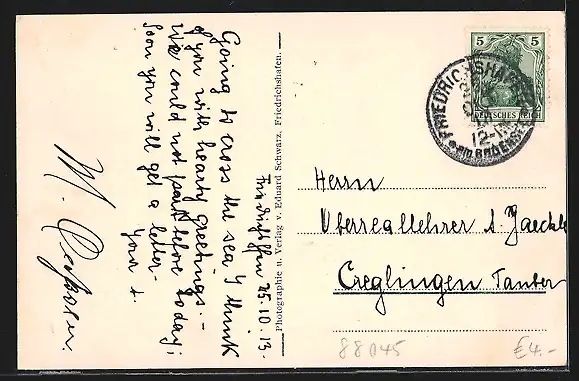 Going to cross the sea I think
of you with hearty greetings. –
We could not part before today;
soon you will get a letter –
Your
M.
25. 10. 13.
Photographie u. Verlag v. Eduard Schwarz, Friedrichshafen.
5 5
DEUTSCHES REICH
FRIEDRICHSHAFEN
12-1
am BODENSEE
Herrn
Oberreallehrer A. Jaeckle
Creglingen Tauber
88045
£4.-